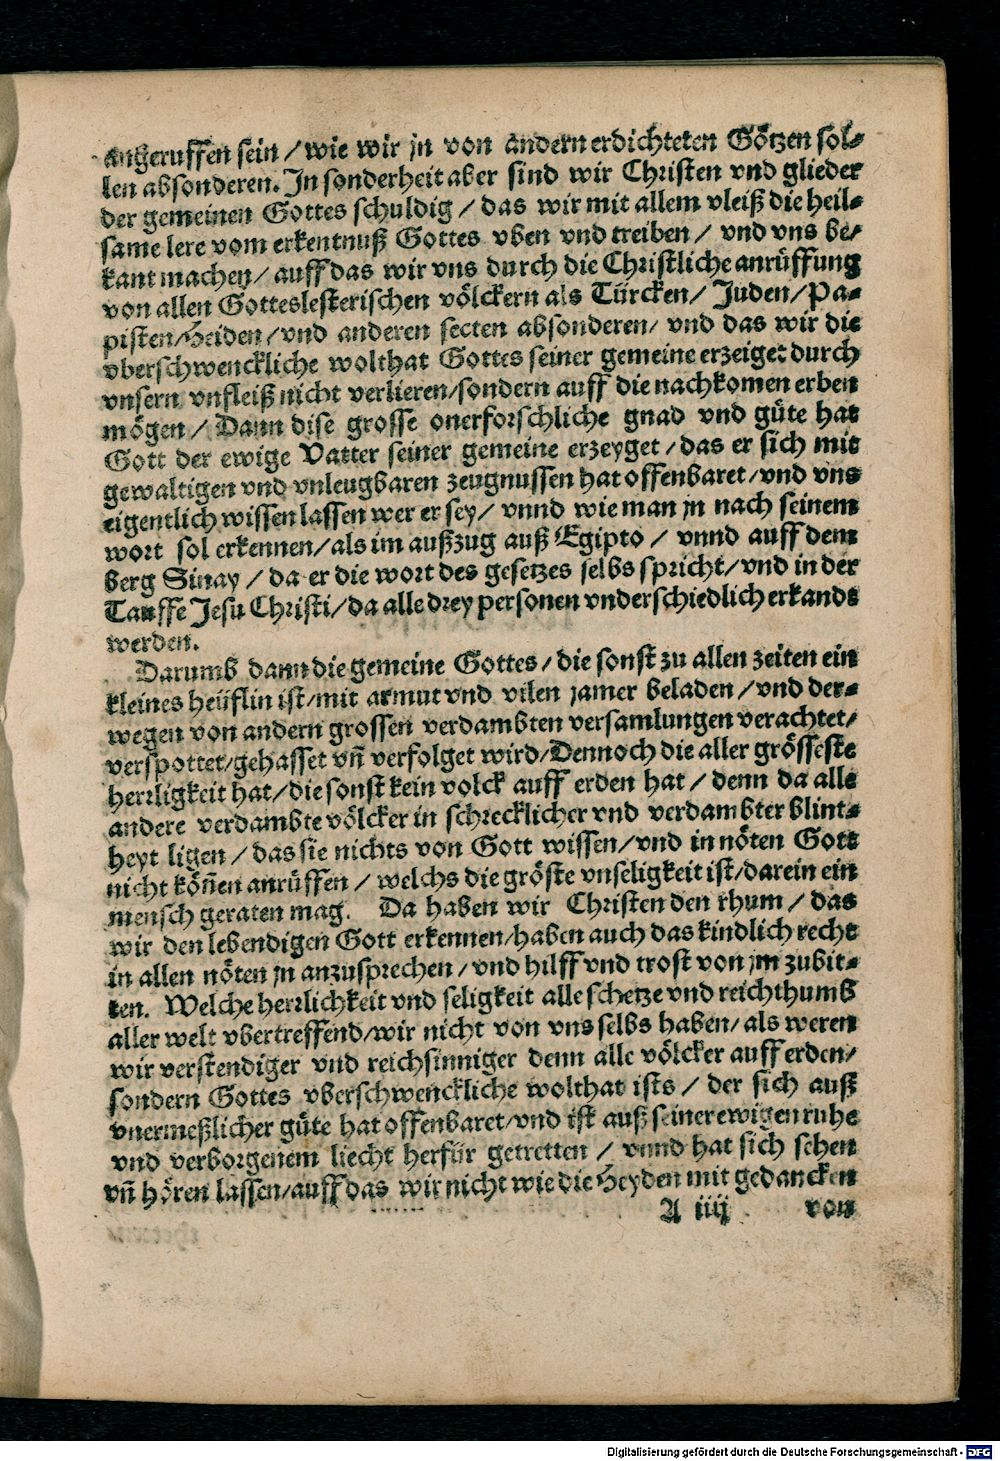 angeruffen sein / wie wir jn von andern erdichteten Götzen sol-
len absonderen. In sonderheit aber sind wir Christen vnd glieder
der gemeinen Gottes schuldig / das wir mit allem vleiß die heil-
same lere vom erkentnuß Gottes vben vnd treiben / vnd vns be-
kant machen / auff das wir vns durch die Christliche anrüffung
von allen Gotteslesterischen völckern als Türcken / Juden / Pa-
pisten / Heiden / vnd anderen secten absonderen / vnd das wir die
vberschwenckliche wolthat Gottes seiner gemeine erzeiget durch
vnsern vnfleiß nicht verlieren / sondern auff die nachkomen erben
mögen / Dann dise grosse onerforschliche gnad vnd güte hat
Gott der ewige Vatter seiner gemeine erzeyget / das er sich mit
gewaltigen vnd vnleugbaren zeugnussen hat offenbaret / vnd vns
eigentlich wissen lassen wer er sey / vnnd wie man jn nach seinem
wort sol erkennen / als im außzug auß Egipto / vnnd auff dem
berg Sinay / da er die wort des gesetzes selbs spricht / vnd in der
Tauffe Jesu Christi / da alle drey personen vnderschiedlich erkands
werden.
Darumb dann die gemeine Gottes / die sonst zu allen zeiten ein
kleines heüflin ist / mit armut vnd vilen jamer beladen / vnd der-
wegen von andern grossen verdambten versamlungen verachtet /
verspottet / gehasset vñ verfolget wird / Dennoch die aller grösseste
herrligkeit hat / die sonst kein volck auff erden hat / denn da alle
andere verdambte völcker in schrecklicher vnd verdambter blint-
heyt ligen / das sie nichts von Gott wissen / vnd in nöten Gott
nicht köñen anrüffen / welchs die gröste vnseligkeit ist / darein ein
mensch geraten mag. Da haben wir Christen den rhum / das
wir den lebendigen Gott erkennen / haben auch das kindlich recht
in allen nöten jn anzusprechen / vnd hilff vnd trost von jm zubit-
ten. Welche herrlichkeit vnd seligkeit alle schetze vnd reichthumb
aller welt vbertreffend / wir nicht von vns selbs haben / als weren
wir verstendiger vnd reichsinniger denn alle völcker auff erden /
sondern Gottes vberschwenckliche wolthat ists / der sich auß
vnermeßlicher güte hat offenbaret / vnd ist auß seiner ewigen ruhe
vnd verborgenem liecht herfür getretten / vnnd hat sich sehen
vñ hören lassen / auff das wir nicht wie die Heyden mit gedancken
A iiij von
Digitalisierung gefördert durch die Deutsche Forschungsgemeinschaft - DFG